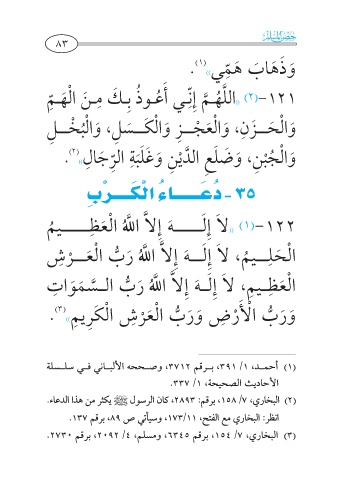 حصن المسلم
٨٣
وَذَهَابَ هَمِّي»(١).
١٢١-(٢) «اللَّهُمَّ إِنِّي أَعُوذُ بِكَ مِنَ الْهَمِّ
وَالْحَزَنِ، وَالْعَجْزِ وَالْكَسَلِ، وَالْبُخْلِ
وَالْجُبْنِ، وَضَلَعِ الدَّيْنِ وَغَلَبَةِ الرِّجَالِ»(٢).
٣٥- دُعَاءُ الْكَرْبِ
١٢٢-(١) «لاَ إِلَهَ إِلاَّ اللَّهُ الْعَظِيمُ
الْحَلِيمُ، لاَ إِلَهَ إِلاَّ اللَّهُ رَبُّ الْعَرْشِ
الْعَظِيمِ، لاَ إِلَهَ إِلاَّ اللَّهُ رَبُّ السَّمَوَاتِ
وَرَبُّ الْأَرْضِ وَرَبُّ الْعَرْشِ الْكَرِيمِ»(٣).
(١) أحمد، ١/ ٣٩١، برقم ٣٧١٢، وصححه الألباني في سلسلة
الأحاديث الصحيحة، ١/ ٣٣٧.
(٢) البخاري، ٧/ ١٥٨، برقم: ٢٨٩٣، كان الرسول ﷺ يكثر من هذا الدعاء.
انظر: البخاري مع الفتح، ١١/ ١٧٣، وسيأتي ص ٨٩، برقم ١٣٧.
(٣) البخاري، ٧/ ١٥٤، برقم ٦٣٤٥، ومسلم، ٤/ ٢٠٩٢، برقم ٢٧٣٠.